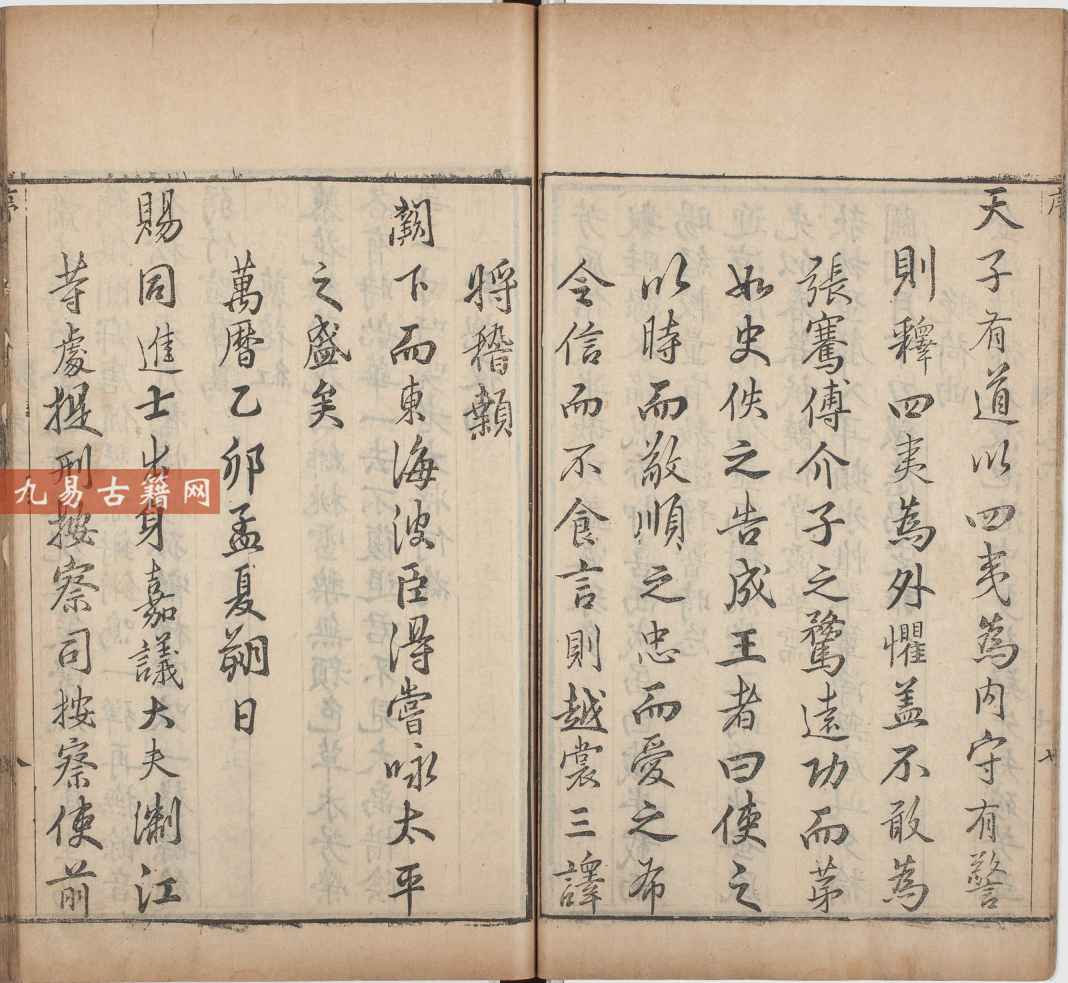 天子有道以四夷為内守有警
則釋四夷為外懼盖不敢為
張騫傅介子之騖遠功而苐
如史佚之告成王者曰使之
以時而敬順之忠而愛之布
令信而不食言則越裳三譯
將稽顙
闕下而東海波臣得嘗咏太平
之盛矣
萬曆乙卯孟夏朔日
賜同進士出身嘉議大夫浙江
等處提刑按察司按察使前
序
序
七
八
九易古籍网